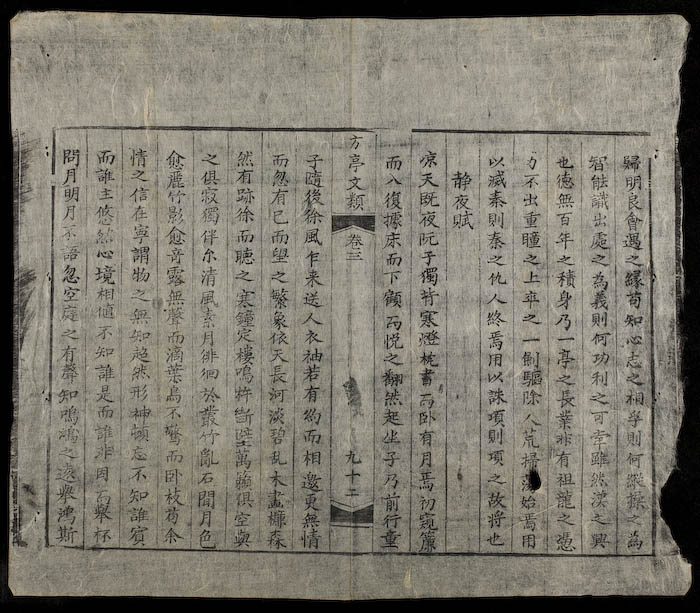 歸明良會遇之緣苟知心志之相孚則何縱操之為
智能識出處之為義則何功利之可言雖然漢之興
也德無百年之積身乃一亭之長業非有祖龍之憑
力不出重瞳之上卒之一劍驅除人荒掃蕩始焉用
以滅秦則秦之仇人終焉用以誅項則項之故將也
静夜賦
凉天既夜阮子獨對寒燈枕書而卧有月焉初窺簾
而入復據床而下顧而悦之翻然起坐子乃前行童
方亭文類
卷三
九十二
子隨後徐風乍来送人衣袖若有約而相邀更無情
而忽有已而望之繁象依天長河淡碧乱木盡櫳森
然有跡徐而聽之寒鐘定樓鳴杵断壁萬籟俱空與
之俱寂獨伴尔清風素月徘徊於叢竹亂石間月色
愈麗竹影愈奇露無聲而滴葉鳥不驚而卧枝苟余
情之信在寧謂物之無知超然形神頓忘不知誰賓
而誰主悠然心境相値不知誰是而誰非因而舉杯
問月明月不語忽空庭之有聲知鳴鴻之遠舉鴻斯